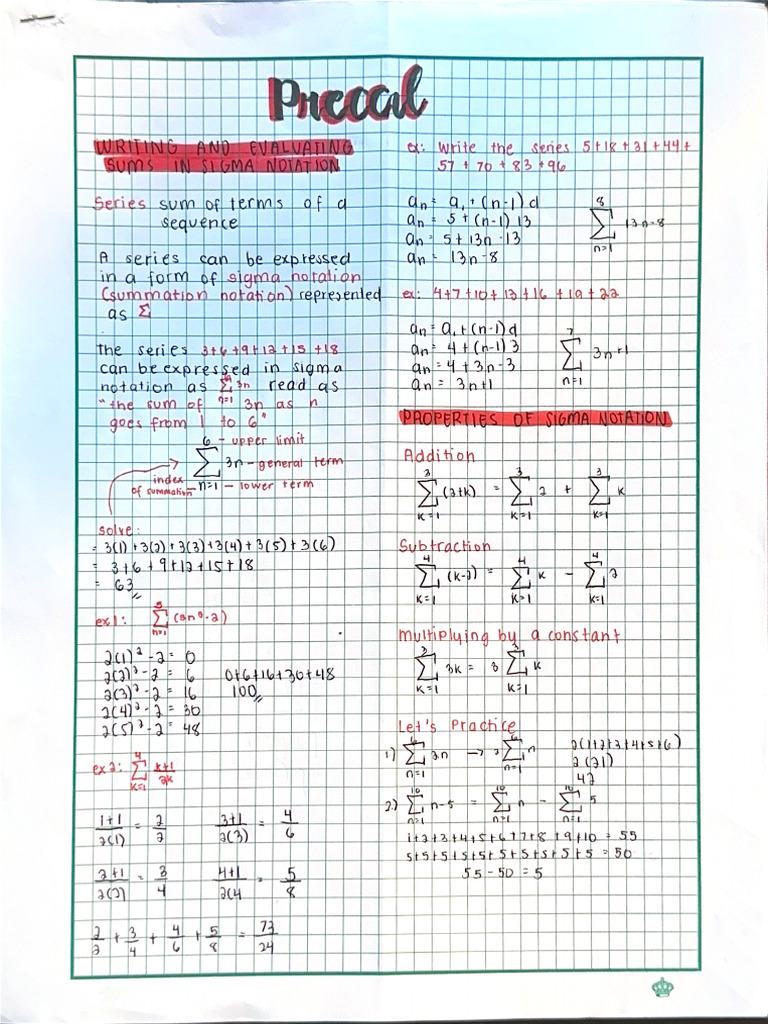 Precal
WRITING AND EVALUATING
SUMS IN SIGMA NOTATION
Series sum of terms of a
sequence
A series can be expressed
in a form of sigma notation
(summation notation) represented
as Σ
The series 3+6+9+12+15+18
can be expressed in sigma
notation as 6 Σ n=1 3n read as
"the sum of 3n as n
goes from 1 to 6"
6 - upper limit
Σ 3n - general term
index
of summation n=1 - lower term
solve:
= 3(1)+3(2)+3(3)+3(4)+3(5)+3(6)
= 3+6+9+12+15+18
= 63
ex1: 5 Σ n=1 (2n²-2)
2(1)²-2 = 0
2(2)²-2 = 6 0+6+16+30+48
2(3)²-2 = 16 100
2(4)²-2 = 30
2(5)²-2 = 48
ex2: 4 Σ k=1 k+1/2k
1+1/2(1) = 2/2 3+1/2(3) = 4/6
2+1/2(2) = 3/4 4+1/2(4 = 5/8
2/2 + 3/4 + 4/6 + 5/8 = 73/24
ex: Write the series 5+18+31+44+
57+70+83+96
an = a1+(n-1)d
an = 5+(n-1)13
an = 5+13n-13
an = 13n-8
8 Σ n=1 13n-8
ex: 4+7+10+13+16+19+22
an = a1+(n-1)d
an = 4+(n-1)3
an = 4+3n-3
an = 3n+1
7 Σ n=1 3n+1
PROPERTIES OF SIGMA NOTATION
Addition
3 Σ k=1 (2+k) = 3 Σ k=1 2 + 3 Σ k=1 k
Subtraction
4 Σ k=1 (k-2) = 4 Σ k=1 k - 4 Σ k=1 2
Multiplying by a constant
3 Σ k=1 3k = 3 3 Σ k=1 k
Let's Practice
1) 6 Σ n=1 2n → 2 6 Σ n=1 n 2(1+2+3+4+5+6)
2(21)
42
2) 10 Σ n=1 n-5 = 10 Σ n=1 n - 10 Σ n=1 5
1+2+3+4+5+6+7+8+9+10 = 55
5+5+5+5+5+5+5+5+5+5 = 50
55-50 = 5